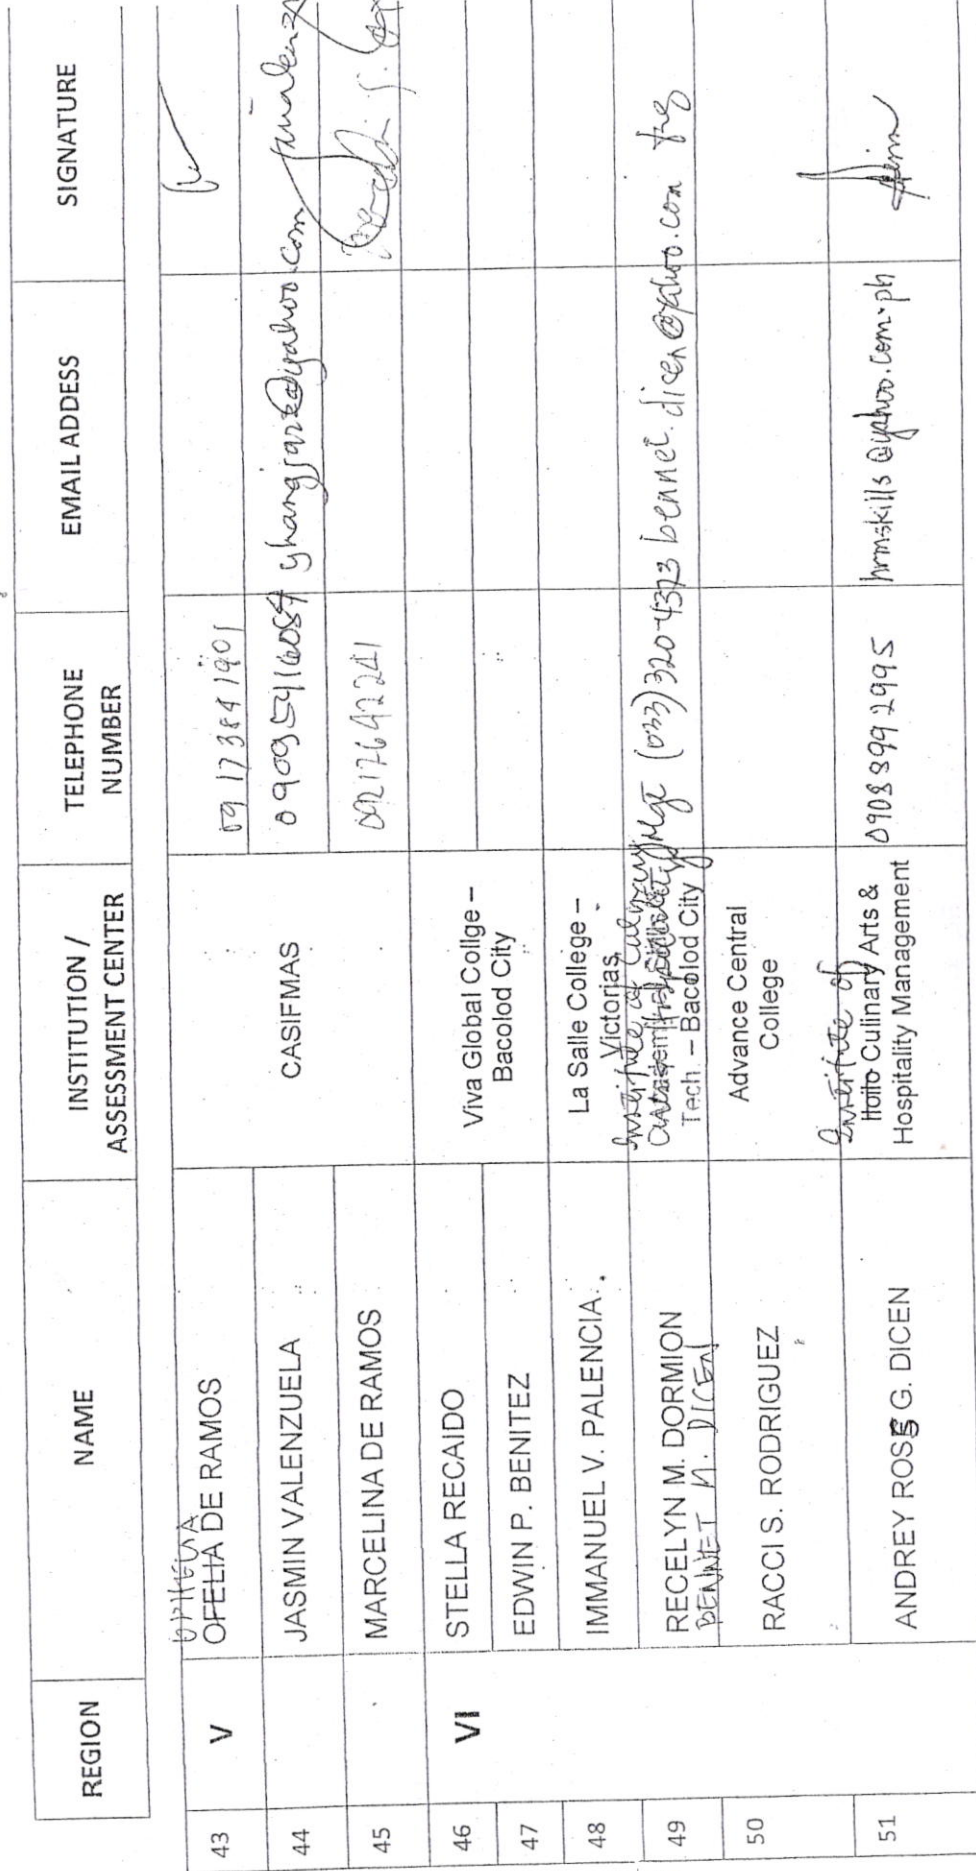 REGION
NAME
INSTITUTION /
ASSESSMENT CENTER
TELEPHONE
NUMBER
EMAIL ADDESS
SIGNATURE
43
V
OPHELIA
OFELIA DE RAMOS
CASIFMAS
09173841901
44
JASMIN VALENZUELA
09095416054
45
MARCELINA DE RAMOS
09217642241
46
VI
STELLA RECAIDO
Viva Global Collge –
Bacolod City
47
EDWIN P. BENITEZ
48
IMMANUEL V. PALENCIA
La Salle College –
Victorias
49
RECELYN M. DORMION
BENNET N. DICEN
Institute of Culinary
Tech. – Bacolod City
(033)320-4373
bennet.dicen@yahoo.com
50
RACCI S. RODRIGUEZ
Advance Central
College
51
ANDREY ROSE G. DICEN
Institute of
Iloilo Culinary Arts &
Hospitality Management
0908 899 2995
hrmskills@yahoo.com.ph